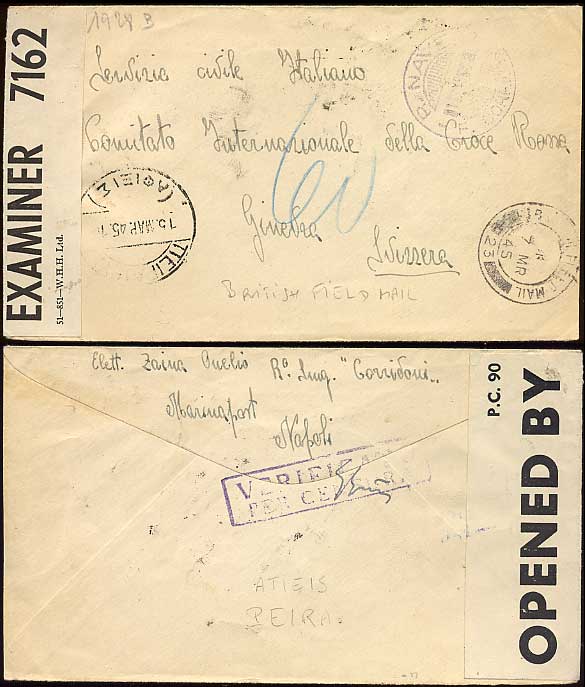 1928 B
EXAMINER 7162
51-851-W.H.H. Ltd.
Servizio civile Italiano
Comitato Internazionale della Croce Rossa
Ginevra
Svizzera
BRITISH FIELD MAIL
R. NAV
(ΑΦΙΞΙΣ)
15. MAR. 45.
ΠΕΙ
MAIL
7 MR
45
23
Elett. Zaina Onelio R. Smg. "Corridoni"
Marinapost
Napoli
VERIFICA
PER CEN
ATIEIS
PEIRA
P.C. 90
OPENED BY